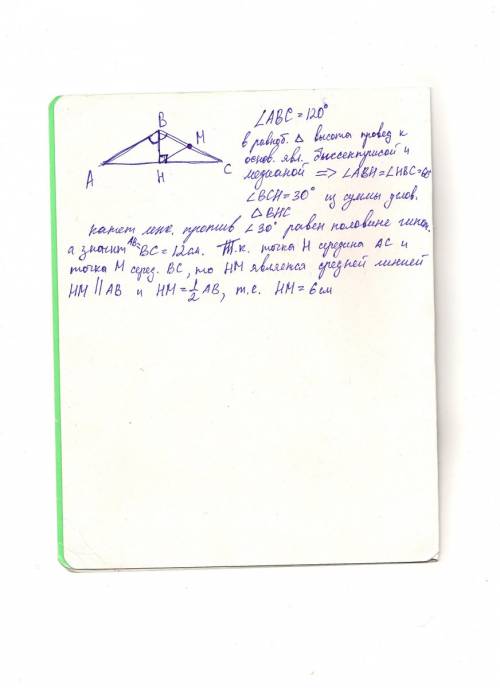 B
M
A
H
C
∠ABC = 120°
в равноб. △ высота провед к
основ. явл. биссектрисой и
медианой => ∠ABH = ∠HBC = 60°
∠BCH = 30° из суммы углов.
△BHC
катет леж. против ∠30° равен половине гипот.
а значит AB= BC = 12 см. Т.к. точка H середина AC и
точка M серед. BC, то HM является средней линией
HM || AB и HM = 1/2 AB, т.е. HM = 6 см